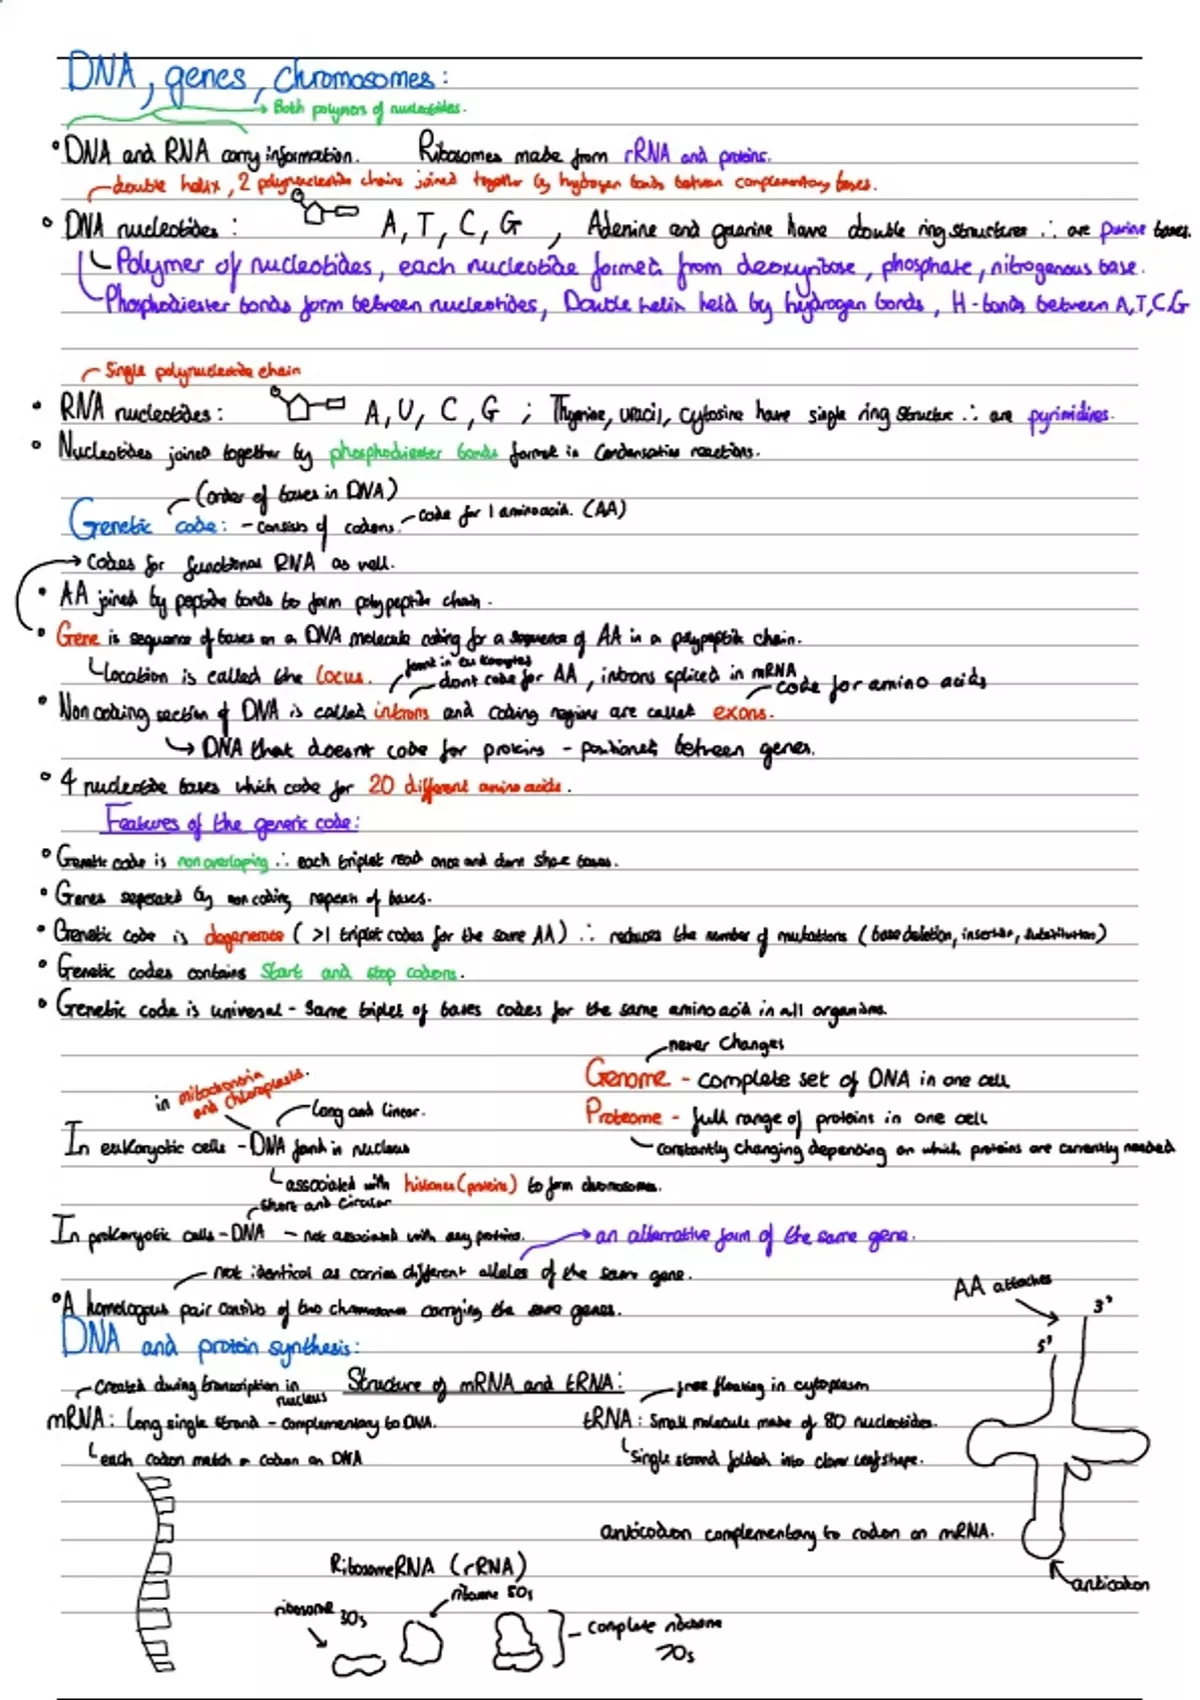 DNA, genes, chromosomes:
Both polymers of nucleotides.
DNA and RNA carry information. Ribosomes made from rRNA and proteins.
double helix, 2 polynucleotide chains joined together by hydrogen bonds between complementary bases.
DNA nucleotides: A, T, C, G, Adenine and guanine have double ring structures ∴ are purine bases.
Polymer of nucleotides, each nucleotide formed from deoxyribose, phosphate, nitrogenous base.
Phosphodiester bonds form between nucleotides, Double helix held by hydrogen bonds, H-bonds between A,T,C,G
Single polynucleotide chain
RNA nucleotides: A, U, C, G ; Thymine, uracil, cytosine have single ring structure ∴ are pyrimidines.
Nucleotides joined together by phosphodiester bonds formed in condensation reactions.
(order of bases in DNA)
Genetic code: - consists of codons. code for 1 amino acid. (AA)
Codes for functional RNA as well.
AA joined by peptide bonds to form polypeptide chain.
Gene is sequence of bases on a DNA molecule coding for a sequence of AA in a polypeptide chain.
found in eukaryotes
Location is called the locus. dont code for AA, introns spliced in mRNA
code for amino acids
Non coding section of DNA is called introns and coding regions are called exons.
DNA that doesnt code for proteins - positioned between genes.
4 nucleotide bases which code for 20 different amino acids.
Features of the generic code:
Genetic code is non overlaping ∴ each triplet read once and dont share bases.
Genes seperated by non coding repeats of bases.
Genetic code is degenerate ( >1 triplet codes for the same AA) ∴ reduces the number of mutations (base deletion, insertion, substitution)
Genetic codes contains Start and stop codons.
Genetic code is universal - Same triplet of bases codes for the same amino acid in all organisms.
never changes
Genome - complete set of DNA in one cell
in mitochondria and chloroplasts.
long and linear.
Proteome - full range of proteins in one cell
In eukaryotic cells - DNA found in nucleus
constantly changing depending on which proteins are currently needed
associated with histones (proteins) to form chromosomes.
short and circular
In prokaryotic cells - DNA - not associated with any proteins.
an alternative form of the same gene.
not identical as carries different alleles of the same gene.
A homologous pair consists of two chromosomes carrying the same genes.
AA attaches
3'
5'
DNA and protein synthesis:
created during transcription in nucleus
Structure of mRNA and tRNA:
free floating in cytoplasm
mRNA: Long single strand - complementary to DNA.
tRNA: Small molecule made of 80 nucleotides.
each codon match a codon on DNA
Single strand folded into clover leaf shape.
anticodon complementary to codon on mRNA.
anticodon
RibosomeRNA (rRNA)
ribosome 30s
ribosome 50s
complete ribosome
70s